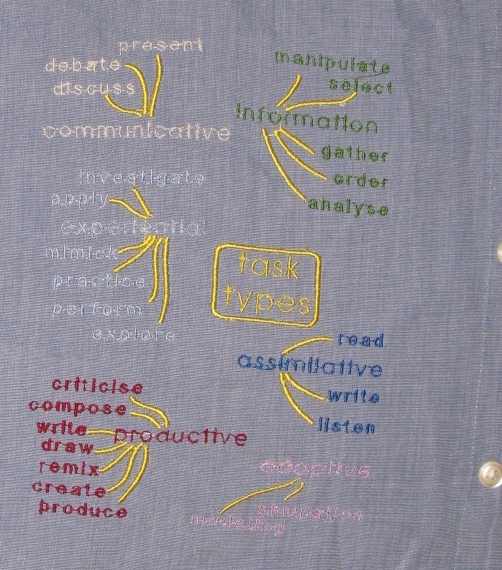 present
debate
discuss
communicative
manipulate
select
information
gather
order
analyse
investigate
apply
experiential
mimick
practice
perform
explore
task
types
read
assimilative
write
listen
criticise
compose
write
productive
draw
remix
create
produce
adaptive
simulation
modelling